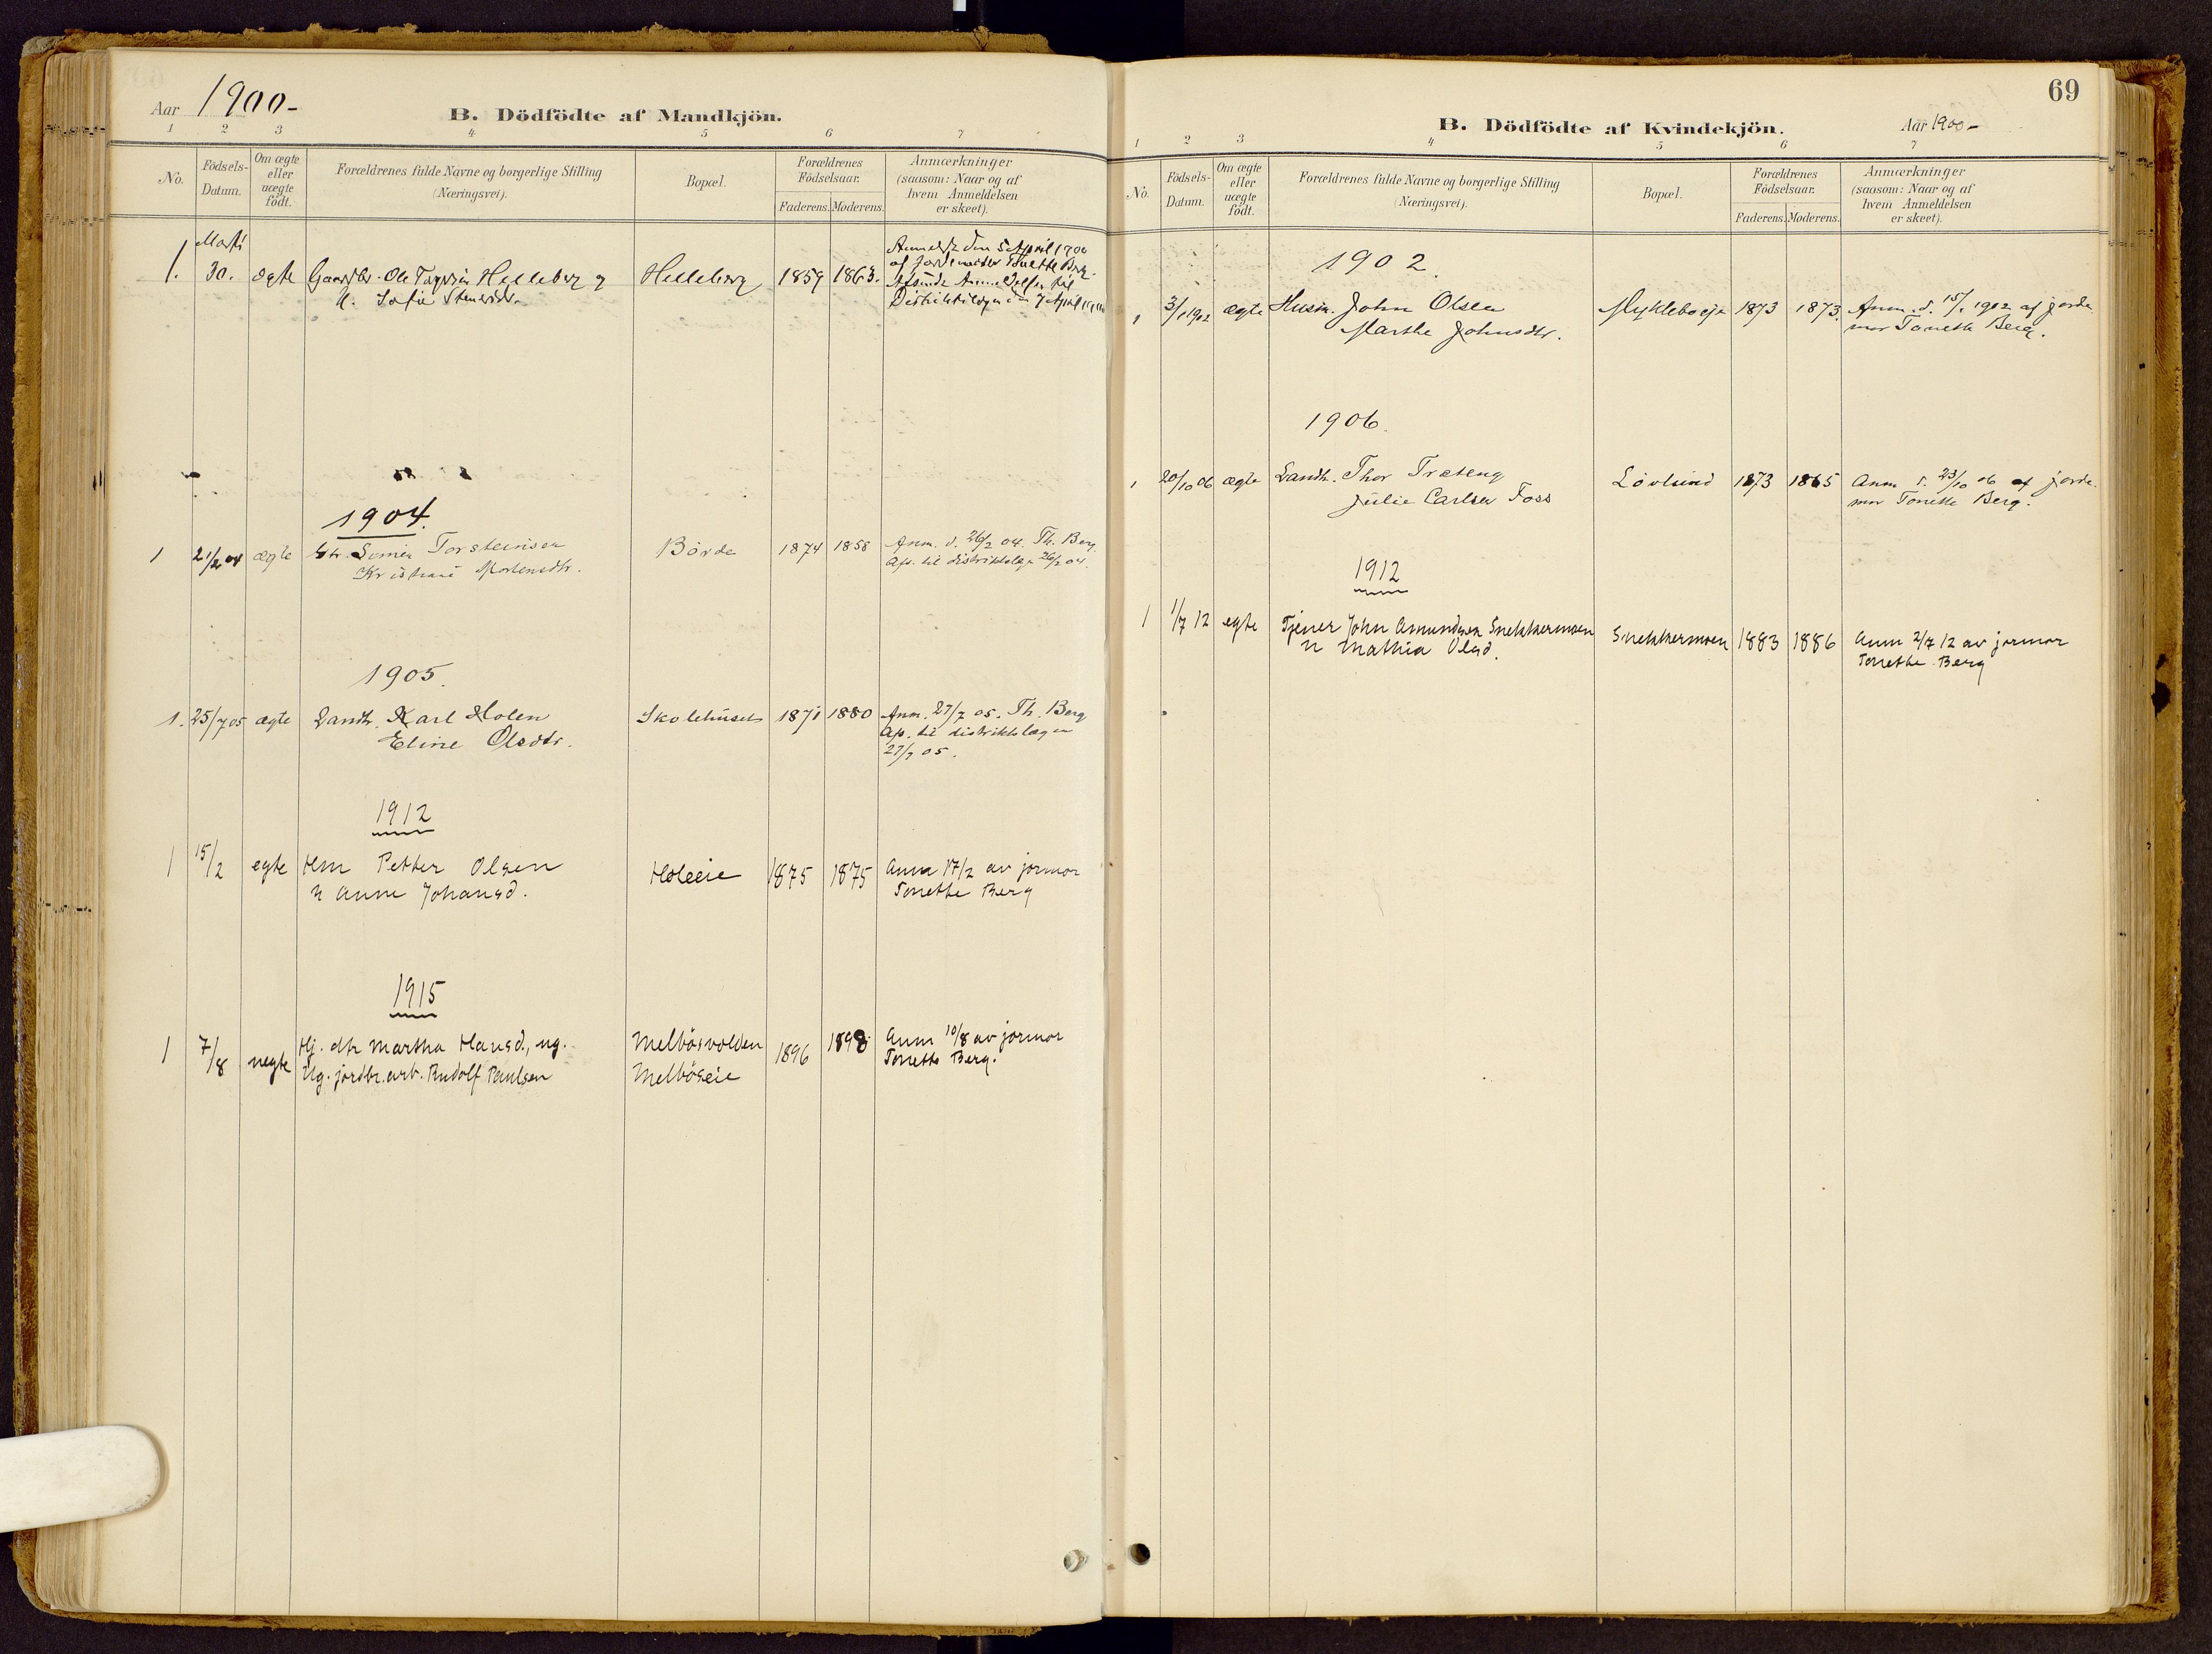 Aar 1900-
B. Dödfödte af Mandkjön.
1 2 3 4 5 6 7
No.
Födsels-Datum.
Om ægte eller uægte födt.
Forældrenes fulde Navne og borgerlige Stilling (Næringsvei).
Bopæl.
Forældrenes Födselsaar.
Faderens. Moderens.
Anmærkninger (saasom: Naar og af hvem Anmeldelsen er skeet).
1. Marts 30. ægte Gaardbr. Ole Helleberg Helleberg 1859 1863. Anmeldt den 5 April 1900
H. Sofie af Jordemoder
Distriktslægen den 7 April
1904.
1 21/2 04 ægte Torsteinsen Börde 1874 1858 Anm. d. 26/2 04. Th. Berg.
Mortensdtr. Afs. til distriktslæge 26/2 04.
1905.
1. 25/7 05 ægte Landh. Karl Holen Skolehuset 1871 1880 Anm. 27/7 05. Th. Berg
Eline Olsdtr. Afs. til distriktslægen
27/7 05.
1912
1 15/2 egte Hm Petter Olsen Holeeie 1875 1875 Anm 17/2 av jormor
h Anne Johansd. Tonethe Berg
1915
1 7/8 uegte Hj. dtr Martha Hansd., ug. Melbösvolden 1896 1898 Anm 10/8 av jormor
Ug. jordbr.arb. Rudolf Paulsen Melböseie Tonette Berg.
69
B. Dödfödte af Kvindekjön.
Aar 1900-
1 2 3 4 5 6 7
No.
Födsels-Datum.
Om ægte eller uægte födt.
Forældrenes fulde Navne og borgerlige Stilling (Næringsvei).
Bopæl.
Forældrenes Födselsaar.
Faderens. Moderens.
Anmærkninger (saasom: Naar og af hvem Anmeldelsen er skeet).
1902.
1 3/1 1902 ægte Husm. John Olsen Mykleboeje 1873 1873. Anm. d. 15/1 1902 af jorde
Marthe Johnsdtr. mor Tonette Berg.
1906.
1 20/10 06 ægte Landh. Thor Træteng Lövlund 1873 1865 Anm d. 23/10 06 af jorde
Julie Carlsen Foss mor Tonette Berg.
1912
1 1/7 12 egte Tjener John Amundsen Snekkermoen Snekkermoen 1883 1886 Anm 2/7 12 av jormor
h Mathia Olsd. Tonethe Berg